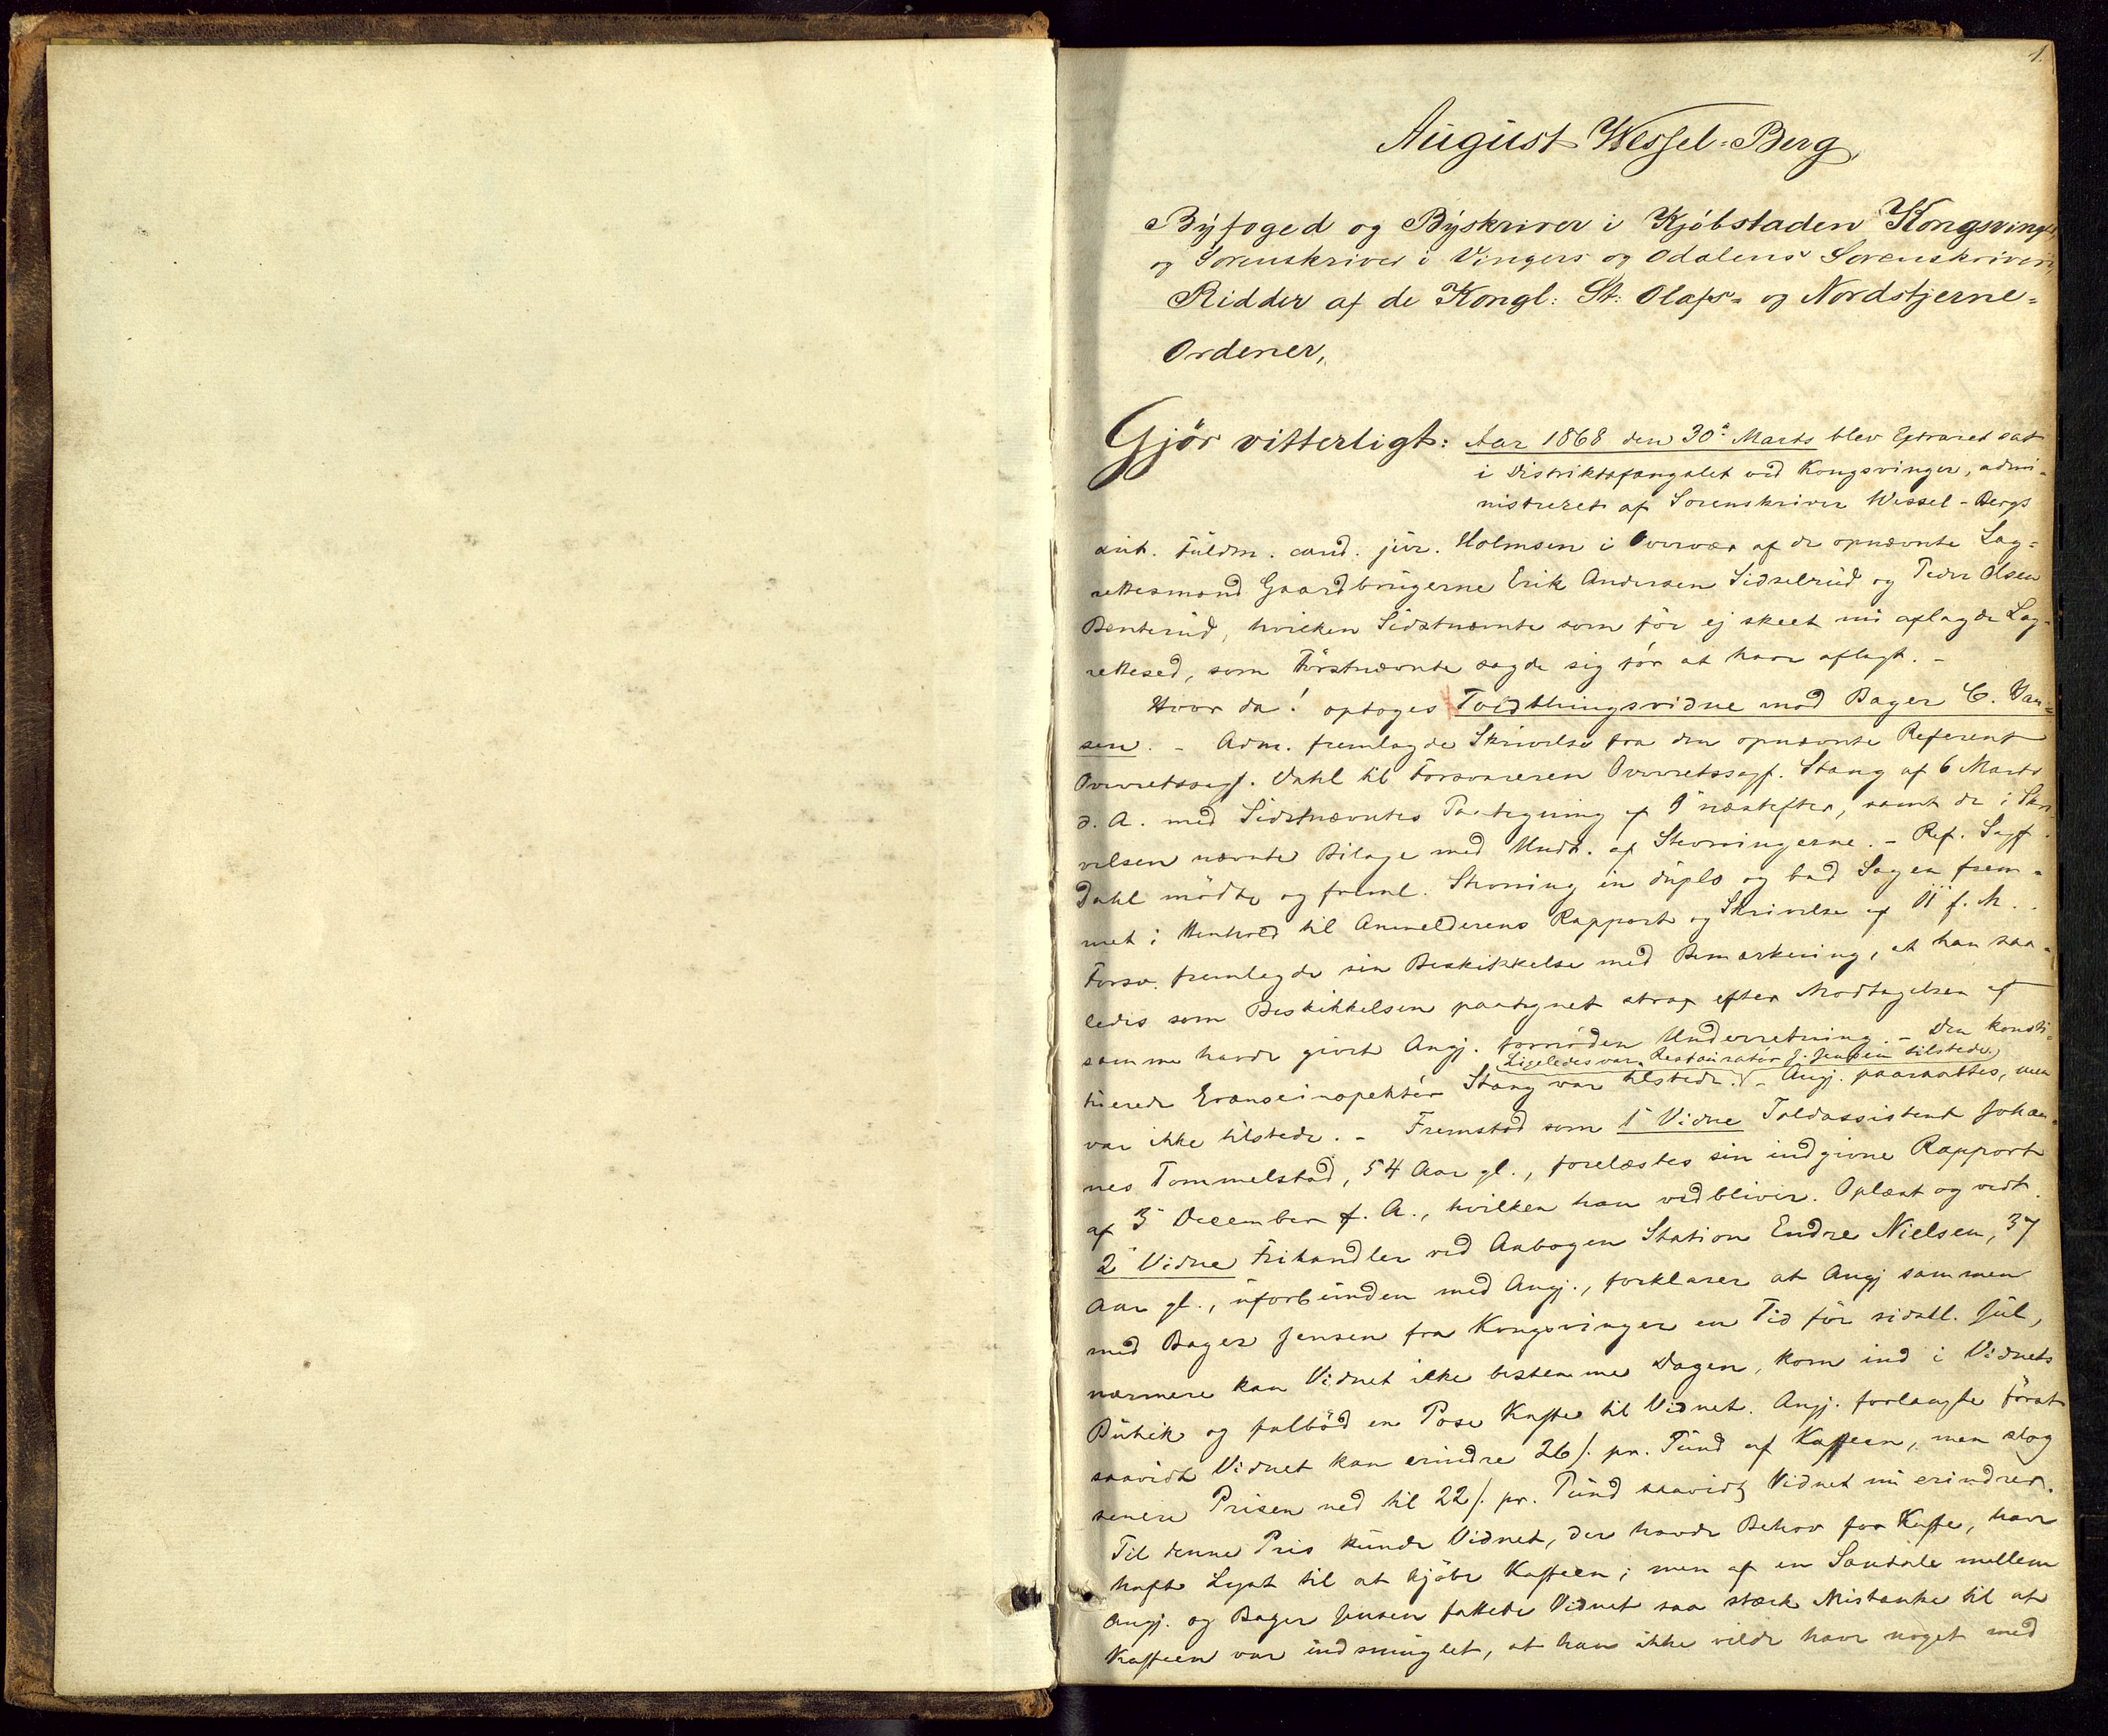 1.
August Wessel-Berg,
Byfoged og Byskriver i Kjøbstaden Kongsvinger,
og Sorenskriver i Vingers og Odalens Sorenskriveri,
Ridder af de Kongl: St: Olafs- og Nordstjerne-
Ordener,
Gjör vitterligt: Aar 1868 den 30te Marts blev Extraret sat
i Distriktsfængslet ved Kongsvinger, admi-
nistreret af Sorenskriver Wessel-Bergs
aut. Fuldm. cand. jur. Holmsen i Overvær af de opnævnte Lag-
rettesmænd Gaardbrugerne Erik Andersen Sidselrud og Peder Olsen
Benterud, hvilken Sidstnævnte som för ej skeet nu aflagde Lag-
rettesed, som Förstnævnte sagde sig för at have aflagt. -
Hvor da! optoges Toldthingsvidne mod Bager C. Han-
sen. - Adm. fremlagde Skrivelse fra den opnævnte Referent
Overretssagf. Dahl til Forsvareren Overretssagf. Stang af 6 Marts
d. A. med Sidstnævntes Paategning af 9de næstefter, samt de i Skri
velsen nævnte Bilage med Undt. af Stevningerne. - Ref. Sagf.
Dahl mödte og freml. Stevning in duplo og bad Sagen frem-
met i Henhold til Anmelderens Rapport og Skrivelse af 11 f. M.
Forsv. fremlagde sin Beskikkelse med Bemærkning, at han saa-
ledes som Beskikkelsen paategnet strax efter Modtagelsen af
samme havde givet Angj. fornöden Underretning. - Den konsti-
Ligeledes var Restauratör J. Jensen tilstede.
tuerede Grænseinspektör Stang var tilstede. - Angj. paaraabtes, men
var ikke tilstede. - Fremstod som 1te Vidne Toldassistent Johan-
nes Tommelstad, 54 Aar gl., forelæstes sin indgivne Rapport
af 3 December f. A., hvilken han vedbliver. Oplæst og vedt.
2det Vidne Frihandler ved Aabogen Station Endre Nielsen, 37
Aar gl., uforbunden med Angj., forklarer at Angj sammen
med Bager Jensen fra Kongsvinger en Tid för sidstl. Jul,
nærmere kan Vidnet ikke bestemme Dagen, kom ind i Vidnets
Butik og falböd en Pose Kaffe til Vidnet. Angj. forlangte först
saavidt Vidnet kan erindre 26 s. pr. Pund af Kaffeen, men slog
senere Prisen ned til 22 s. pr. Pund saavidt Vidnet nu erindrer.
Til denne Pris kunde Vidnet, der havde Behov for Kaffe, have
haft Lyst til at kjöbe Kaffeen; men af en Samtale mellem
Angj. og Bager Jensen fattede Vidnet saa stærk Mistanke til at
Kaffeen var indsmuglet, at han ikke vilde have noget med